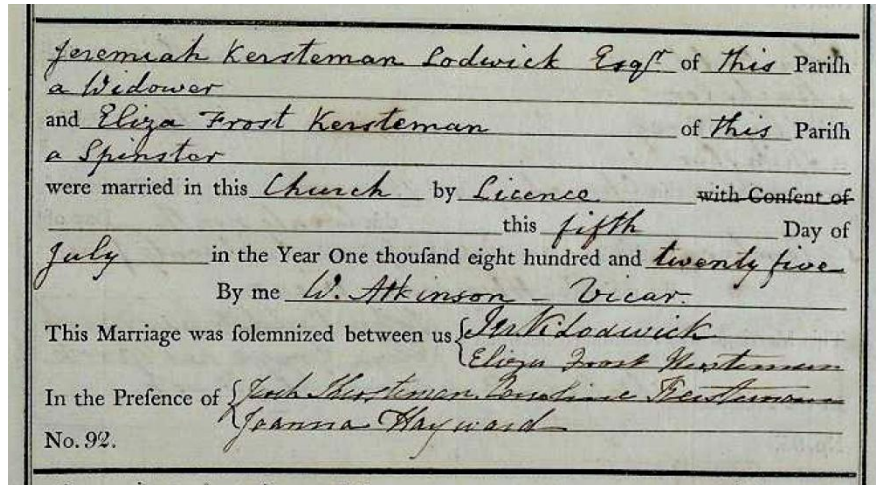 Jeremiah Kersteman Lodwick Esqr of this Parish
a Widower
and Eliza Frost Kersteman of this Parish
a Spinster
were married in this Church by Licence with Consent of
this fifth Day of
July in the Year One thousand eight hundred and twenty five
By me W. Atkinson - Vicar.
This Marriage was solemnized between us Lodwick
Eliza Frost Kersteman
In the Presence of Kersteman Caroline Kersteman
Joanna Hayward
No. 92.